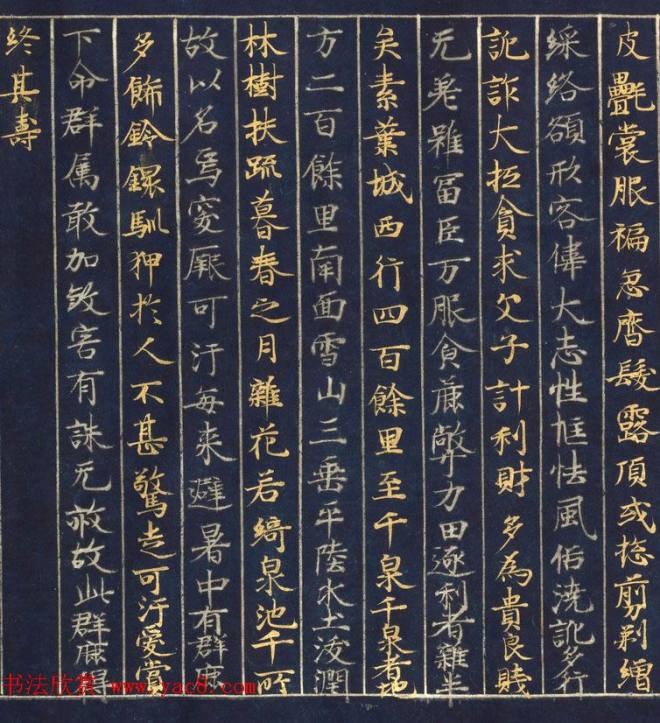 皮㲲裳服褊急齊髮露頂或惣剪剃繒
綵絡額形容偉大志性恇怯風俗澆訛多行
詭詐大抵貪求父子計利財多為貴良賤
无差雖富巨万服食麁弊力田逐利者雜半
矣素葉城西行四百餘里至千泉千泉者地
方二百餘里南面雪山三垂平陸水土沃潤
林樹扶疏暮春之月雜花若綺泉池千所
故以名焉突厥可汗每来避暑中有群鹿
多飾鈴鐶馴狎於人不甚驚走可汗愛賞
下命群属敢加煞害有誅无赦故此群鹿得
終其壽
书法欣赏 www.yac8.com